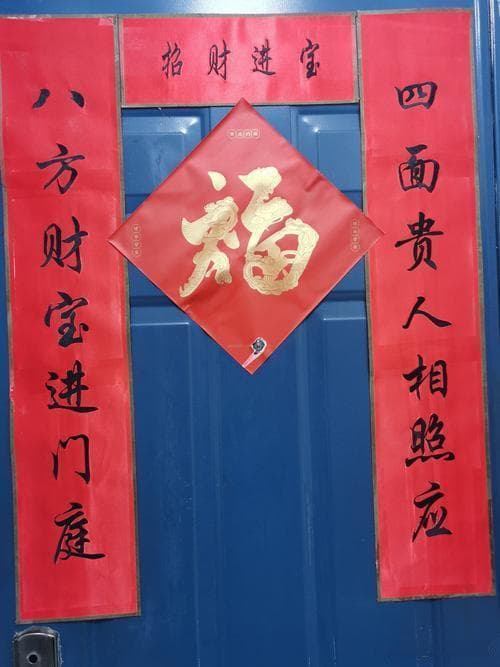 招财进宝
八方财宝进门庭
四面贵人相照应
福